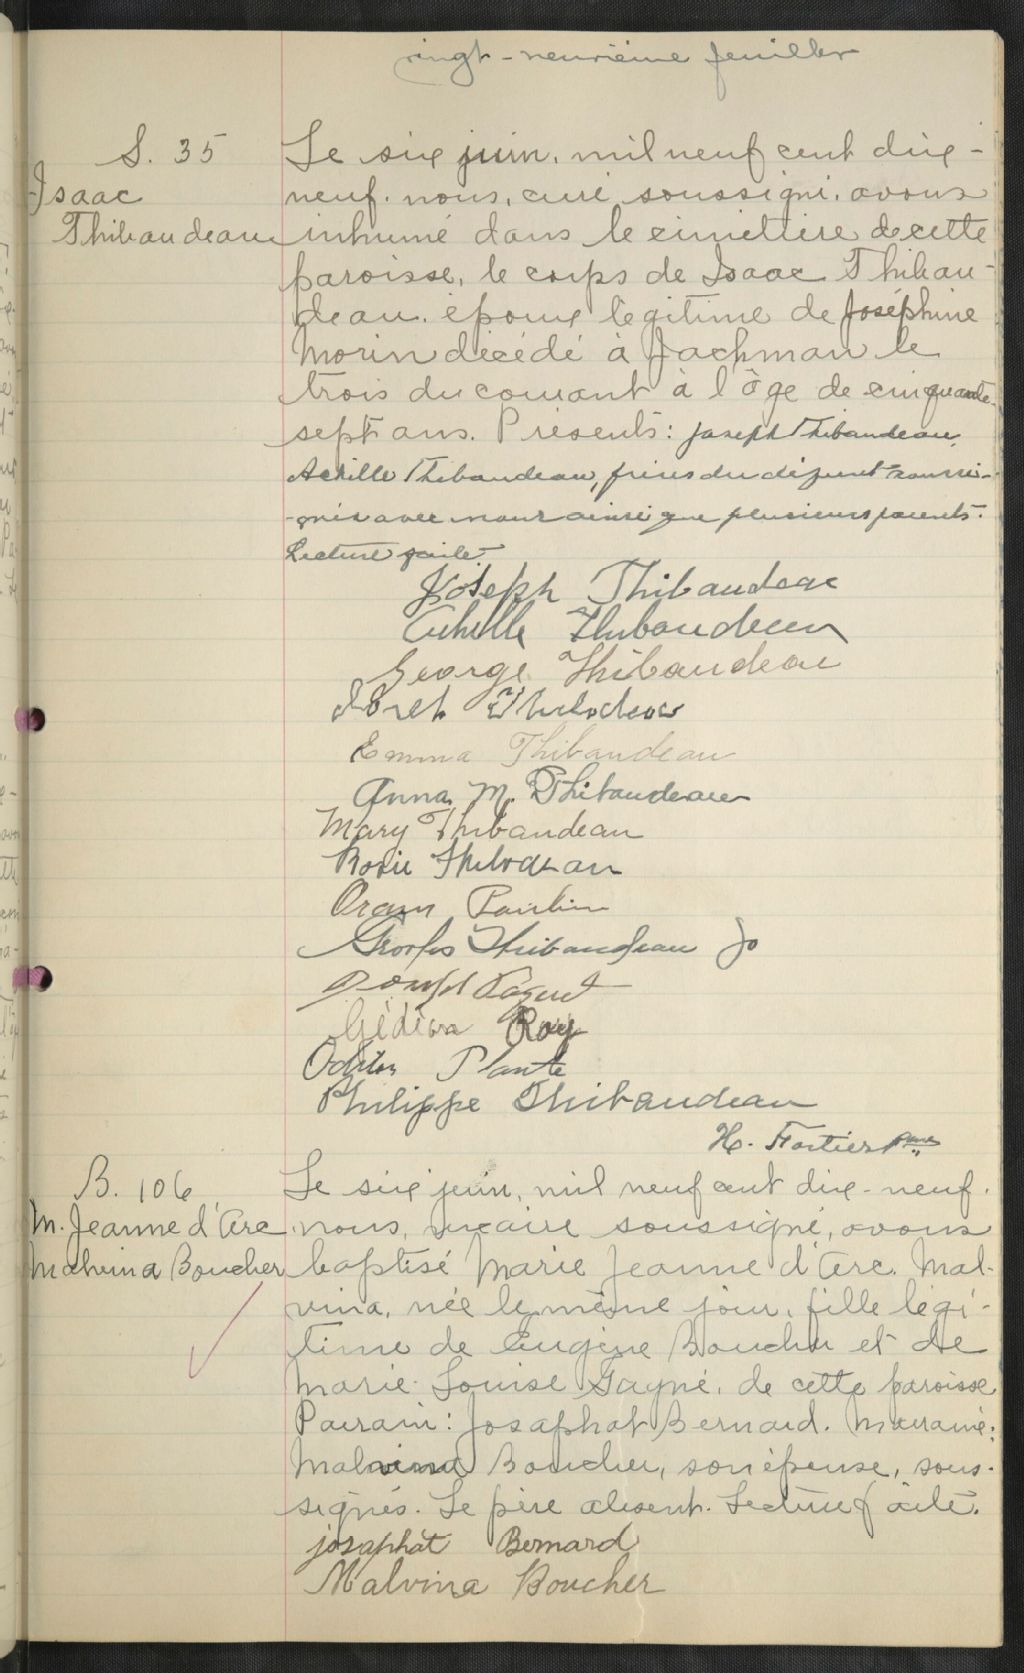 vingt-neuvième feuillet
S. 35
Isaac
Thibaudeau
Le six juin, mil neuf cent dix-
neuf. nous, curé soussigné, avons
inhumé dans le cimetière de cette
paroisse, le corps de Isaac Thibau-
deau. époux légitime de Joséphine
Morin décédé à Jackman le
trois du courant à l'âge de cinquante
sept ans. Présents: Joseph Thibaudeau,
Achille Thibaudeau, frères du défunt soussi-
-gnés avec nous ainsi que plusieurs parents.
Lecture faite.
Joseph Thibaudeau
Achille Thibaudeau
George Thibaudeau
Thibodeau
Emma Thibaudeau
Anna M. Thibaudeau
Mary Thibaudeau
Rosie Thibodeau
Oram Poulin
Thibaudeau Jo
Joseph Paquet
Gédéon Roy
Odilon Plante
Philippe Thibaudeau
H. Fortier
B. 106
M. Jeanne d'Arc
Malvina Boucher
Le six juin, mil neuf cent dix-neuf.
nous, vicaire soussigné, avons
baptisé Marie Jeanne d'Arc. Mal-
vina, née le même jour, fille légi-
time de Eugène Boucher et de
Marie-Louise Gagné, de cette paroisse
Parrain: Josaphat Bernard. Marraine:
Malvina Boucher, son épouse, sous-
signés. Le père absent. Lecture faite.
josaphat Bernard
Malvina Boucher